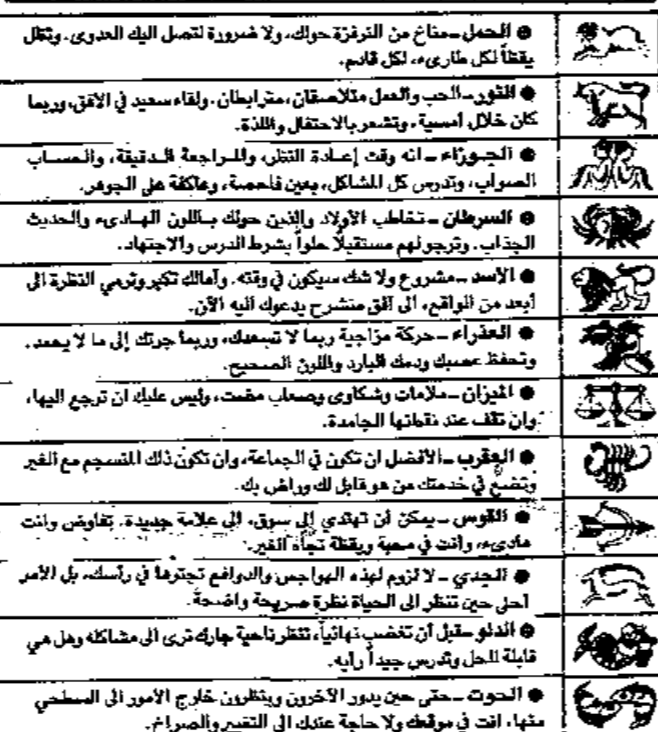 ● الحمل ـ مناخ من النرفزة حولك، ولا ضرورة لتصل اليك العدوى. وتظل
يقظاً لكل طارىء، لكل قادم.
● الثور ـ الحب والعمل متلاصقان، مترابطان. ولقاء سعيد في الافق، وربما
كان خلال امسية. وتشعر بالاحتفال واللذة.
● الجوزاء ـ انه وقت إعادة النظر، والمراجعة الدقيقة، والحساب
الصواب، وتدرس كل المشاكل، بعين فاحصة، وعاكفة على الجوهر.
● السرطان ـ تخاطب الأولاد والذين حولك باللون الهادىء والحديث
الجذاب. وترجو لهم مستقبلاً حلواً بشرط الدرس والاجتهاد.
● الأسد ـ مشروع ولا شك سيكون في وقته. وآمالك تكبر وترمي النظرة الى
أبعد من الواقع، الى افق منشرح يدعوك اليه الآن.
● العذراء ـ حركة مزاجية ربما لا تسعدك، وربما جرتك إلى ما لا يحمد.
وتحفظ عصبك ودمك البارد واللون الصحيح.
● الميزان ـ ملامات وشكاوى وصعاب مضت، وليس عليك ان ترجع اليها،
وان تقف عند نقطتها الجامدة.
● العقرب ـ الأفضل ان تكون في الجماعة، وان تكون ذلك المنسجم مع الغير
وتضع في خدمتك من هو قابل لك وراض بك.
● القوس ـ يمكن ان تهتدي إلى سوق، الى علامة جديدة. تفاوض وانت
هادىء، وانت في محبة ويقظة تجاه الغير.
● الجدي ـ لا لزوم لهذه الهواجس والدوافع تجترها في رأسك، بل الأمر
احلى حين تنظر الى الحياة نظرة صريحة واضحة.
● الدلو ـ قبل أن تغضب نهائياً، تنظر ناحية جارك ترى الى مشاكله وهل هي
قابلة للحل وتدرس جيداً رأيه.
● الحوت ـ حتى حين يدور الآخرون وينظرون خارج الأمور الى السطحي
منها، انت في موقعك ولا حاجة عندك الى التفسير والصراخ.